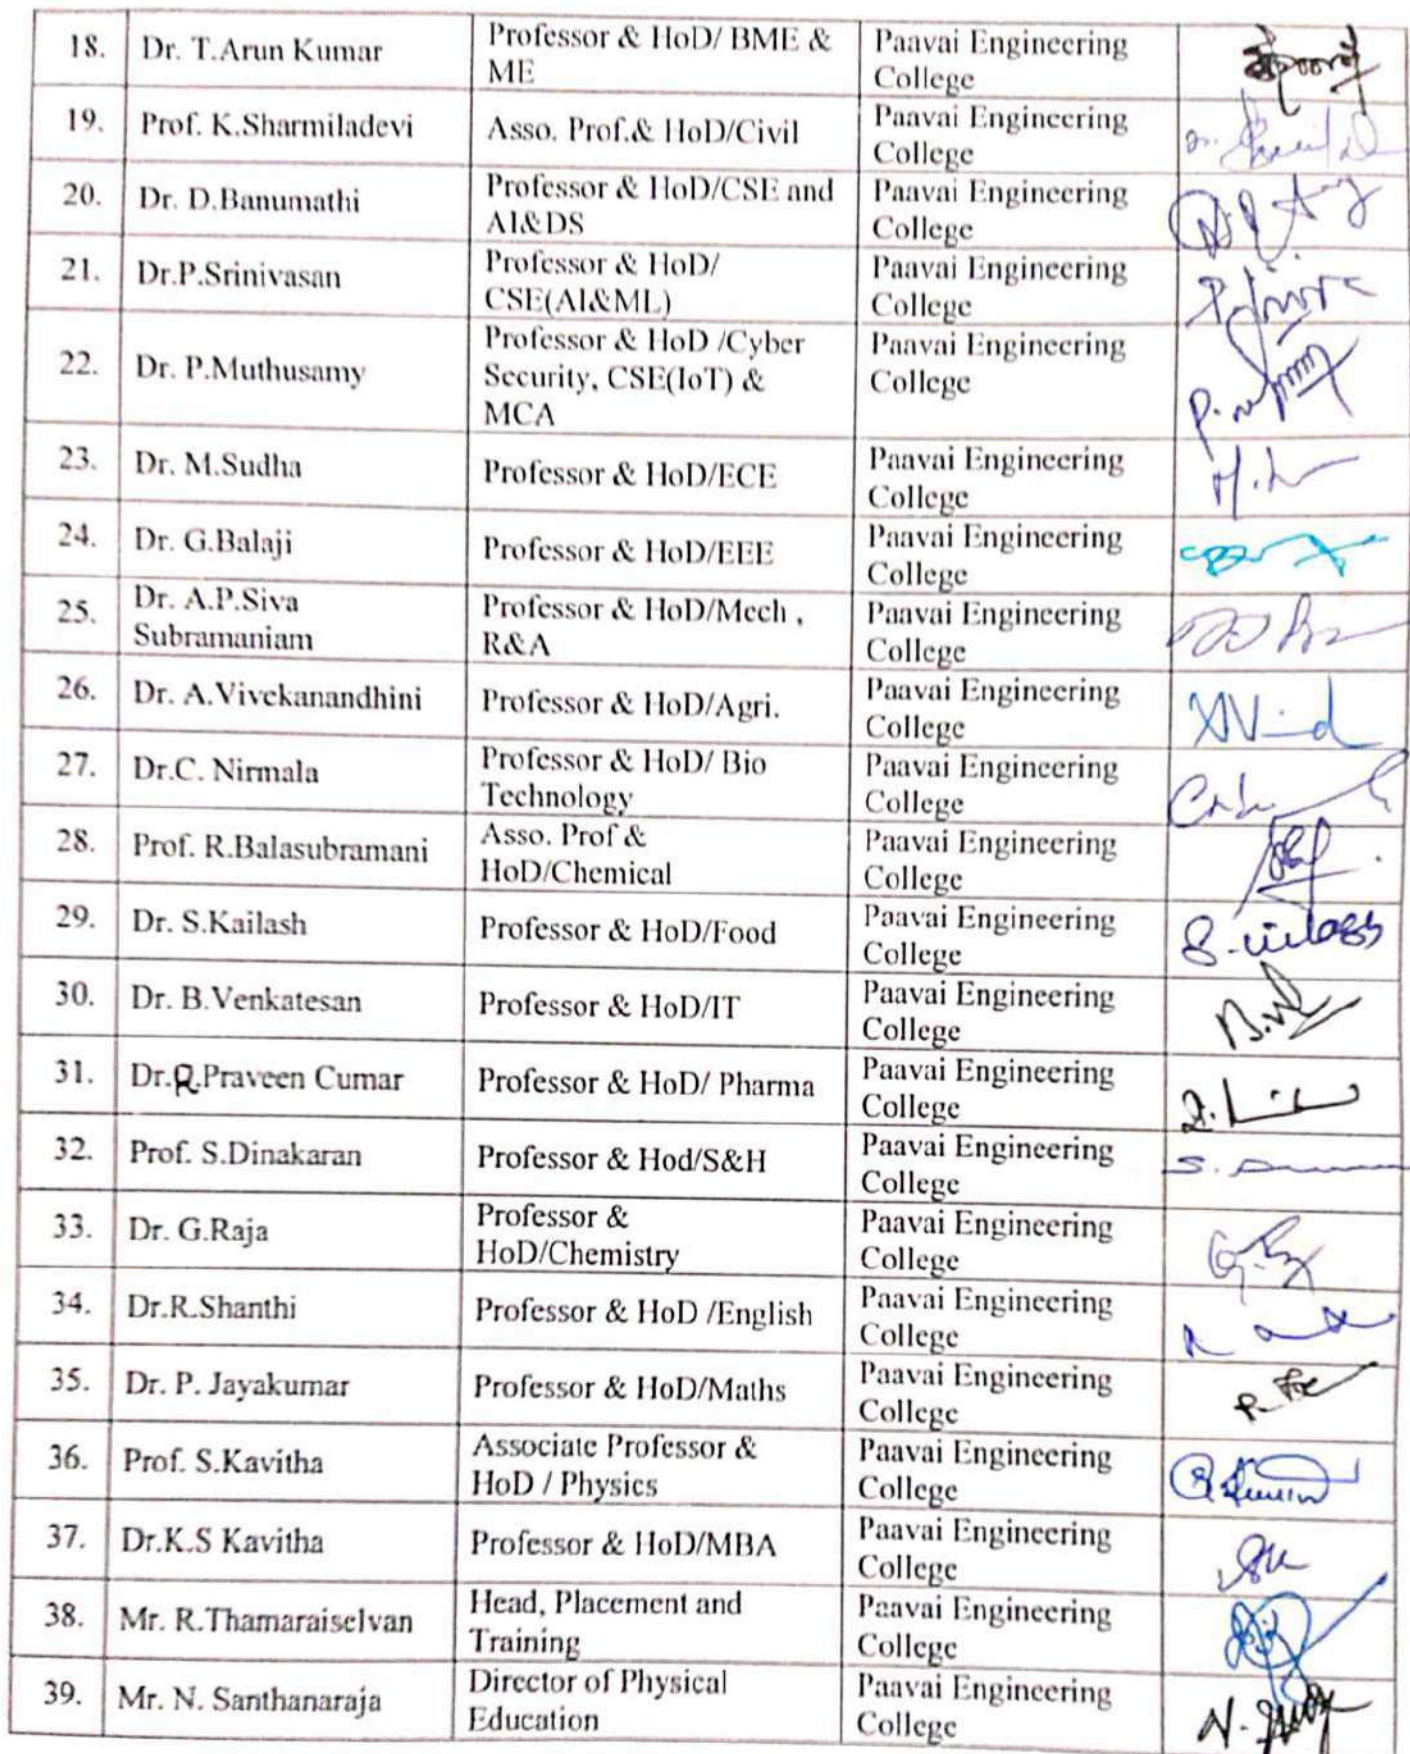 18. Dr. T.Arun Kumar Professor & HoD/ BME & Paavai Engineering
ME College
19. Prof. K.Sharmiladevi Asso. Prof.& HoD/Civil Paavai Engineering
College
20. Dr. D.Banumathi Professor & HoD/CSE and Paavai Engineering
AI&DS College
21. Dr.P.Srinivasan Professor & HoD/ Paavai Engineering
CSE(AI&ML) College
22. Dr. P.Muthusamy Professor & HoD /Cyber Paavai Engineering
Security, CSE(IoT) & College
MCA
23. Dr. M.Sudha Professor & HoD/ECE Paavai Engineering
College
24. Dr. G.Balaji Professor & HoD/EEE Paavai Engineering
College
25. Dr. A.P.Siva Professor & HoD/Mech , Paavai Engineering
Subramaniam R&A College
26. Dr. A.Vivekanandhini Professor & HoD/Agri. Paavai Engineering
College
27. Dr.C. Nirmala Professor & HoD/ Bio Paavai Engineering
Technology College
28. Prof. R.Balasubramani Asso. Prof & Paavai Engineering
HoD/Chemical College
29. Dr. S.Kailash Professor & HoD/Food Paavai Engineering
College
30. Dr. B.Venkatesan Professor & HoD/IT Paavai Engineering
College
31. Dr.R.Praveen Cumar Professor & HoD/ Pharma Paavai Engineering
College
32. Prof. S.Dinakaran Professor & Hod/S&H Paavai Engineering
College
33. Dr. G.Raja Professor & Paavai Engineering
HoD/Chemistry College
34. Dr.R.Shanthi Professor & HoD /English Paavai Engineering
College
35. Dr. P. Jayakumar Professor & HoD/Maths Paavai Engineering
College
36. Prof. S.Kavitha Associate Professor & Paavai Engineering
HoD / Physics College
37. Dr.K.S Kavitha Professor & HoD/MBA Paavai Engineering
College
38. Mr. R.Thamaraiselvan Head, Placement and Paavai Engineering
Training College
39. Mr. N. Santhanaraja Director of Physical Paavai Engineering
Education College